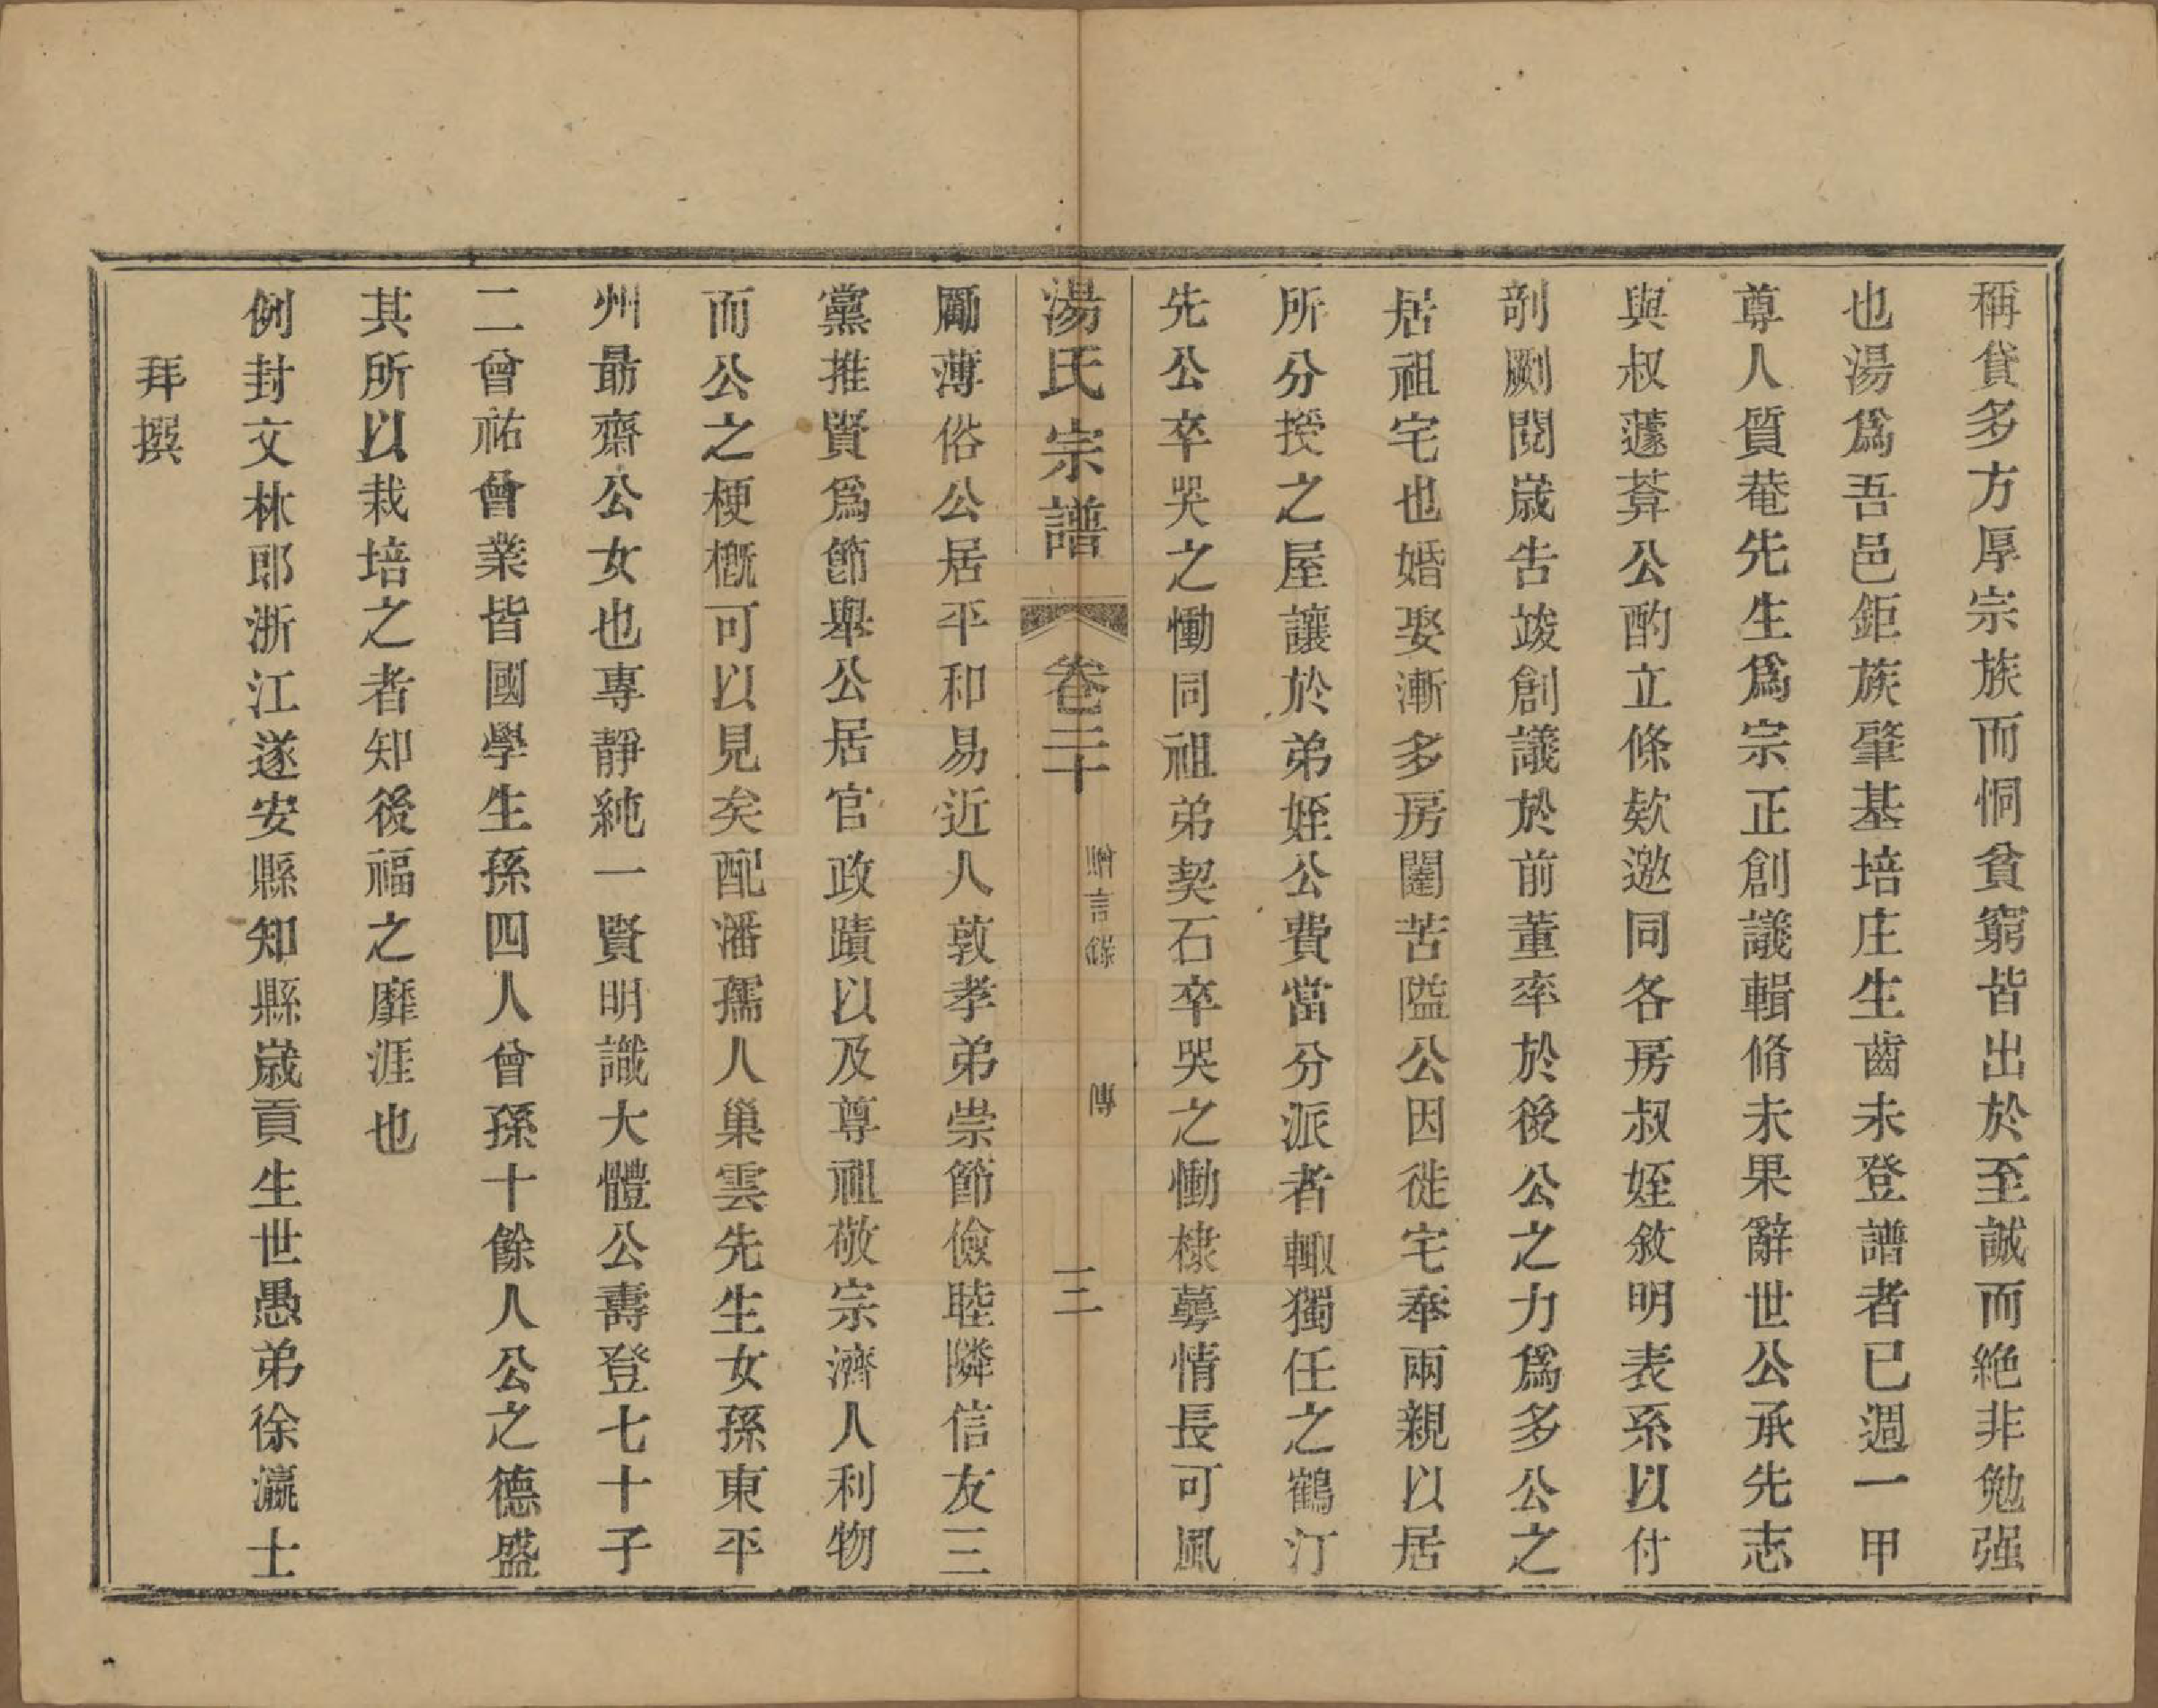 稱貸多方厚宗族而恫貧窮皆出於至誠而絶非勉强
也湯爲吾邑鉅族肇基培庄生齒未登譜者已週一甲
尊人質菴先生爲宗正創議輯脩未果辭世公承先志
與叔蘧莽公酌立條欵邀同各房叔姪敘明表系以付
剞劂閱嵗告竣創議於前董率於後公之力爲多公之
居祖宅也婚娶漸多房闥苦隘公因徙宅奉兩親以居
所分授之屋讓於弟姪公費當分派者輙獨任之鶴汀
先公卒哭之慟同祖弟契石卒哭之慟棣萼情長可風
湯氏宗譜
卷二十
言録
傳
三
勵薄俗公居平和易近人敦孝弟崇節儉睦隣信友三
黨推賢爲節舉公居官政蹟以及尊祖敬宗濟人利物
而公之梗概可以見矣配潘孺人巢雲先生女孫東平
州最齋公女也專靜純一賢明識大體公壽登七十子
二曾祐曾業皆國學生孫四人曾孫十餘人公之德盛
其所以栽培之者知後福之靡涯也
例封文林郎浙江遂安縣知縣嵗貢生世愚弟徐瀛士
拜撰